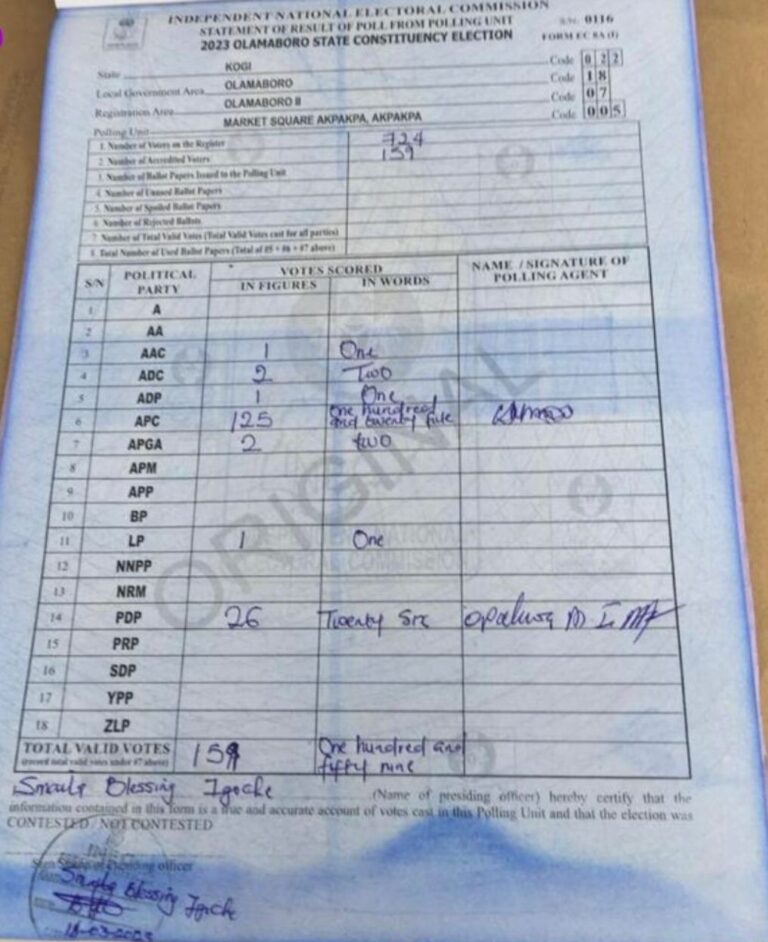 INDEPENDENT NATIONAL ELECTORAL COMMISSION
STATEMENT OF RESULT OF POLL FROM POLLING UNIT
S.No. 0116
2023 OLAMABORO STATE CONSTITUENCY ELECTION
FORM EC 8A (I)
State KOGI Code 022
Local Government Area OLAMABORO Code 18
Registration Area OLAMABORO II Code 07
Polling Unit MARKET SQUARE AKPAKPA, AKPAKPA Code 005
1. Number of Voters on the Register 724
2. Number of Accredited Voters 159
3. Number of Ballot Papers Issued to the Polling Unit
4. Number of Unused Ballot Papers
5. Number of Spoiled Ballot Papers
6. Number of Rejected Ballots
7. Number of Total Valid Votes (Total Valid Votes cast for all parties)
8. Total Number of Used Ballot Papers (Total of #5 + #6 + #7 above)
S/N POLITICAL PARTY VOTES SCORED NAME / SIGNATURE OF POLLING AGENT
IN FIGURES IN WORDS
1 A
2 AA
3 AAC 1 One
4 ADC 2 Two
5 ADP 1 One
6 APC 125 One hundred and twenty five
7 APGA 2 two
8 APM
9 APP
10 BP
11 LP 1 One
12 NNPP
13 NRM
14 PDP 26 Twenty Six
15 PRP
16 SDP
17 YPP
18 ZLP
ORIGINAL
TOTAL VALID VOTES 159 One hundred and fifty nine
(record total valid votes under #7 above)
Blessing (Name of presiding officer) hereby certify that the
information contained in this form is a true and accurate account of votes cast in this Polling Unit and that the election was
CONTESTED / NOT CONTESTED
Presiding officer
Blessing
18-03-2023